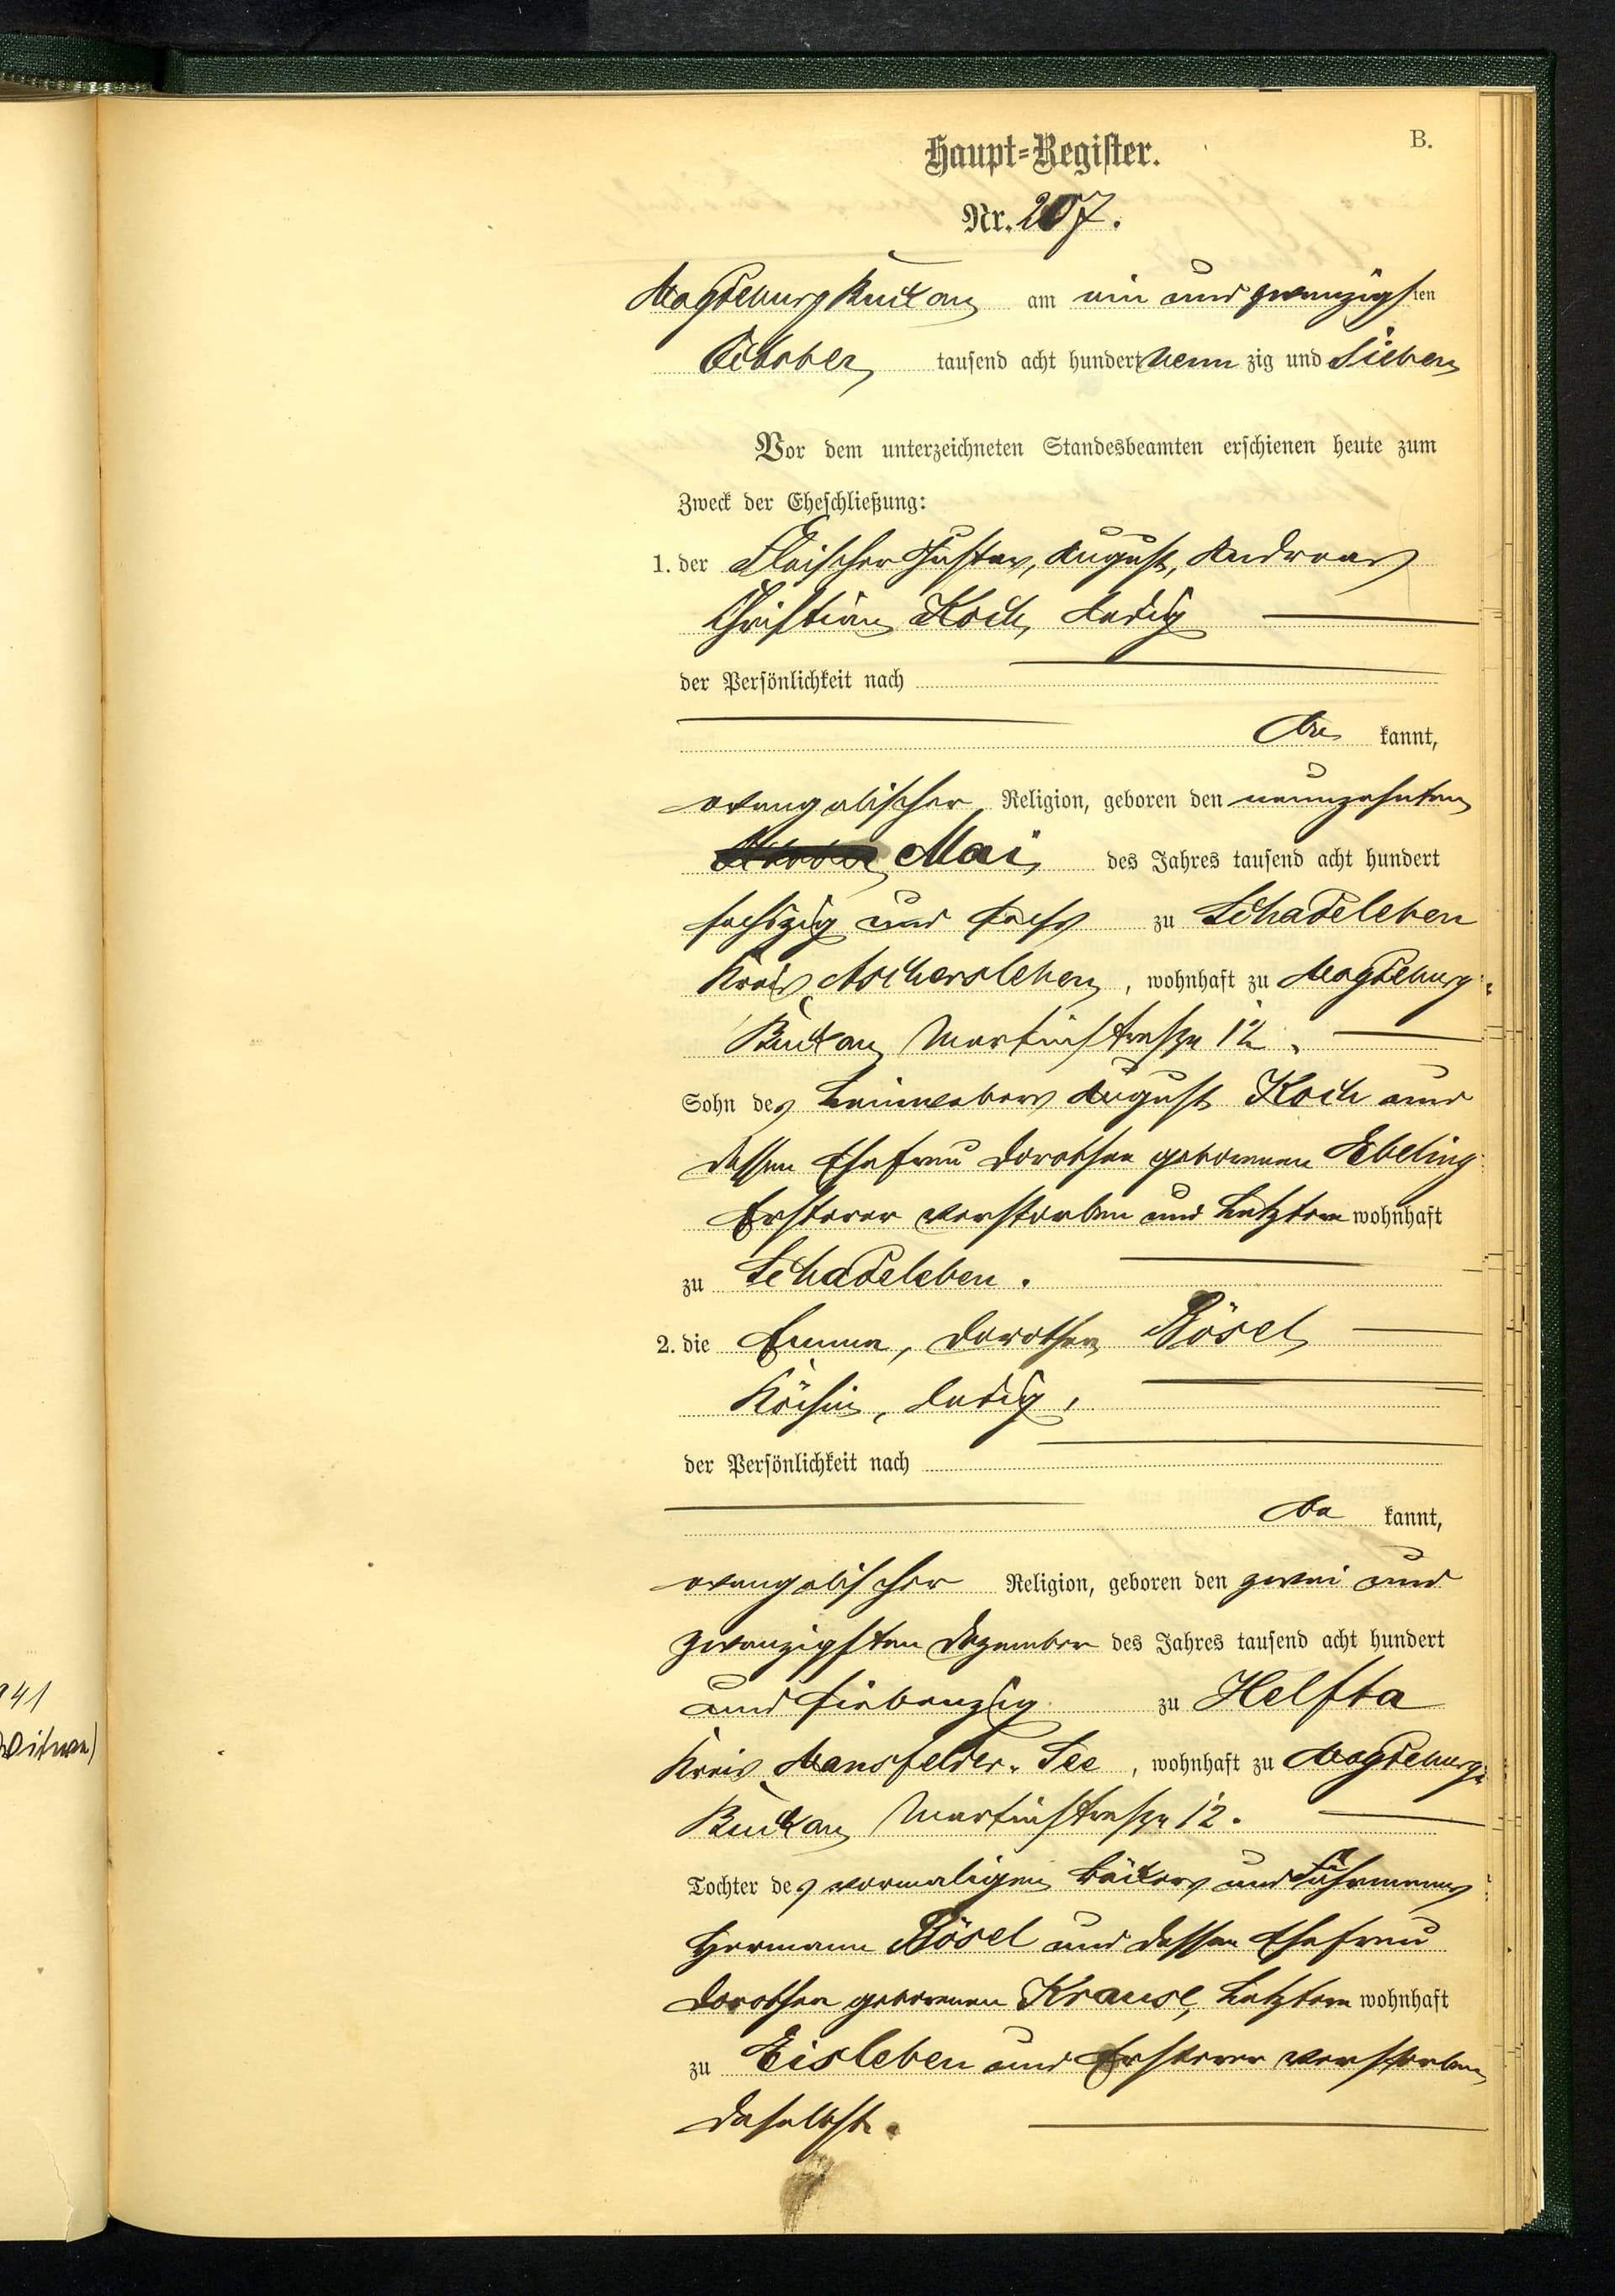 B.
Haupt-Register.
Nr. 207.
Magdeburg Buckau am ein und zwanzigsten
October tausend acht hundert neun zig und sieben
Vor dem unterzeichneten Standesbeamten erschienen heute zum
Zweck der Eheschließung:
1. der Fleischer Gustav, August, Andreas
Christian Koch, ledig
der Persönlichkeit nach
be kannt,
evangelischer Religion, geboren den neunzehnten
October Mai des Jahres tausend acht hundert
sechszig und sechs zu Schadeleben
Kreis Aschersleben, wohnhaft zu Magdeburg-
Buckau Martinstraße 12.
Sohn des Leinwebers August Koch und
dessen Ehefrau Dorothee geborenen Ebeling
Ersterer verstorben und Letztere wohnhaft
zu Schadeleben.
2. die Emma, Dorothea Bösel
Köchin, ledig,
der Persönlichkeit nach
be kannt,
evangelischer Religion, geboren den zwei und
zwanzigsten Dezember des Jahres tausend acht hundert
und siebenzig zu Helfta
Kreis Mansfelder-See, wohnhaft zu Magdeburg-
Buckau Martinstraße 12.
Tochter des vormaligen Bäckers und Fuhrmanns
Hermann Bösel und dessen Ehefrau
Dorothee geborenen Krause, Letztere wohnhaft
zu Eisleben und Ersterer verstorben
daselbst.
941